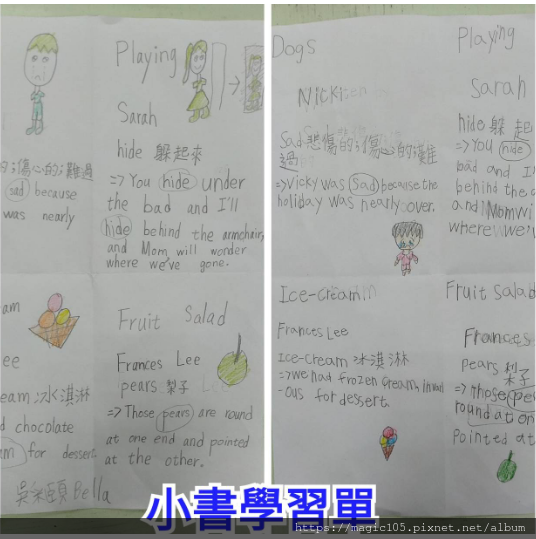 Playing
Sarah
hide 躲起來
的傷心的難過
sad because
was nearly
=> You hide under
the bad and I'll
hide behind the armchair,
and Mom will wonder
where we've gone.
Fruit Salad
Frances Lee
pears 梨子
=> Those pears are round
at one end and pointed
at the other.
eam
ee
eam 冰淇淋
d chocolate
for dessert
Bella
Dogs
sad 悲傷的傷心的難
過
=> Vicky was sad because the
holiday was nearly over.
Playing
Sarah
hide 躲起
=> You hide
bad and I'll
behind the a
and Mom wi
where we've
Ice-cream
Frances Lee
Ice-cream 冰淇淋
=> we had frozen cream
-ous for dessert.
Fruit Salad
Frances
pears 梨子
=> those pe
round at on
pointed at
小書學習單
https://magic105.pixnet.net/album